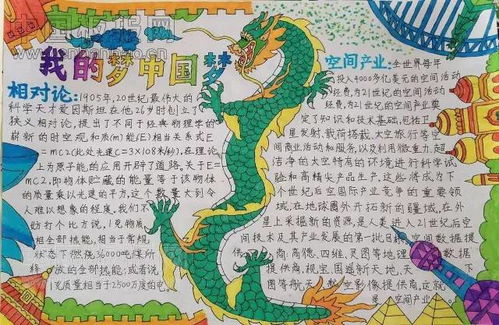 我的梦中国梦
相对论:1905年,20世纪最伟大的
科学天才爱因斯坦在他26岁时创立了
狭义相对论,提出了不同于经典物理学的
崭新的时空观和质(m)能(E)相当关系式E
=mc2(此处光速C=3×108米秒),在理论
上为原子能的应用开辟了道路,关于E=
mC2,即物体贮藏的能量等于该物体
的质量乘以光速的平方,这个数量大到令
人难以想象的程度,我们不
妨打个比方说,1克物质
相当于常规
状态下燃烧36000吨煤所
释放的全部热能;或者说
1克质量相当于2500万度的电
空间产业:全世界每年
投入4000多亿美元的空间活动
经费,为21世纪的空间活动
经费,为21世纪的空间产业奠
定了知识和技术基础,昆技卫
星发射,载荷搭载,太空旅行等空
间商业活动和服务,以及利用微重力,超
洁净的太空特点的环境进行科学试
验和高精尖产品生产,这些将成为下
个世纪后空国际产业竞争的重要领
域,在地球圈外开拓新的疆域,在外
星上采掘新的资源,是人类进入21世纪后空
间技术及其产业发展的第一批目标
空间数据提
供商:高德、四维、灵图等地理
提供商,视宝、图遥新天地
图等航天航空影像提供商,这就
是空间产业